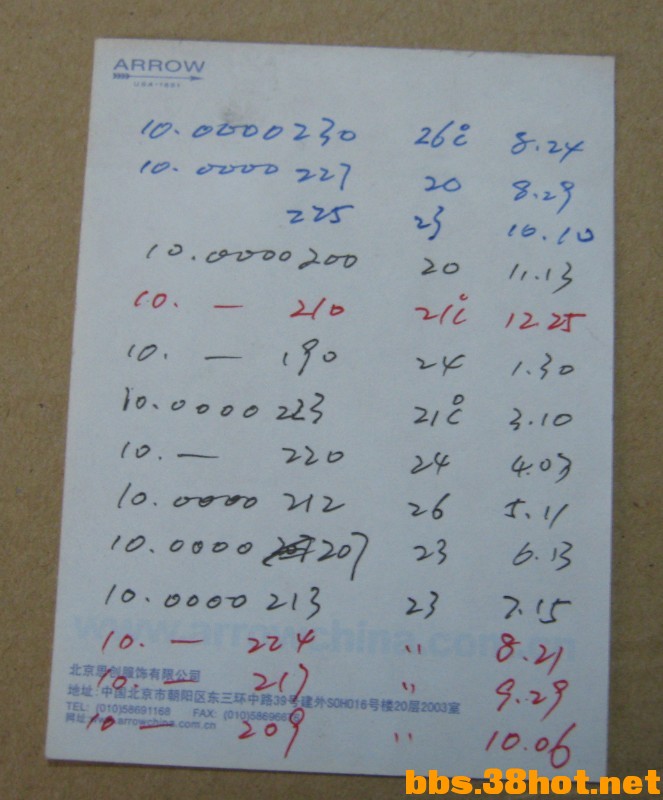 ARROW
USA-1851
10.0000230 26℃ 8.24
10.0000227 20 8.29
225 23 10.10
10.0000200 20 11.13
10. — 210 21℃ 12.25
10. — 190 24 1.30
10.0000223 21℃ 3.10
10. — 220 24 4.03
10.0000212 26 5.11
10.0000 207 23 6.13
10.0000213 23 7.15
www.arrowchina.com.cn
10. — 224 " 8.21
北京思创服饰有限公司
10. — 217 " 9.29
地址:中国北京市朝阳区东三环中路39号建外SOHO16号楼20层2003室
TEL: (010)58691168 FAX: (010)5869667
10 — 209 " 10.06
网址:www.arrowchina.com.cn
bbs.38hot.net